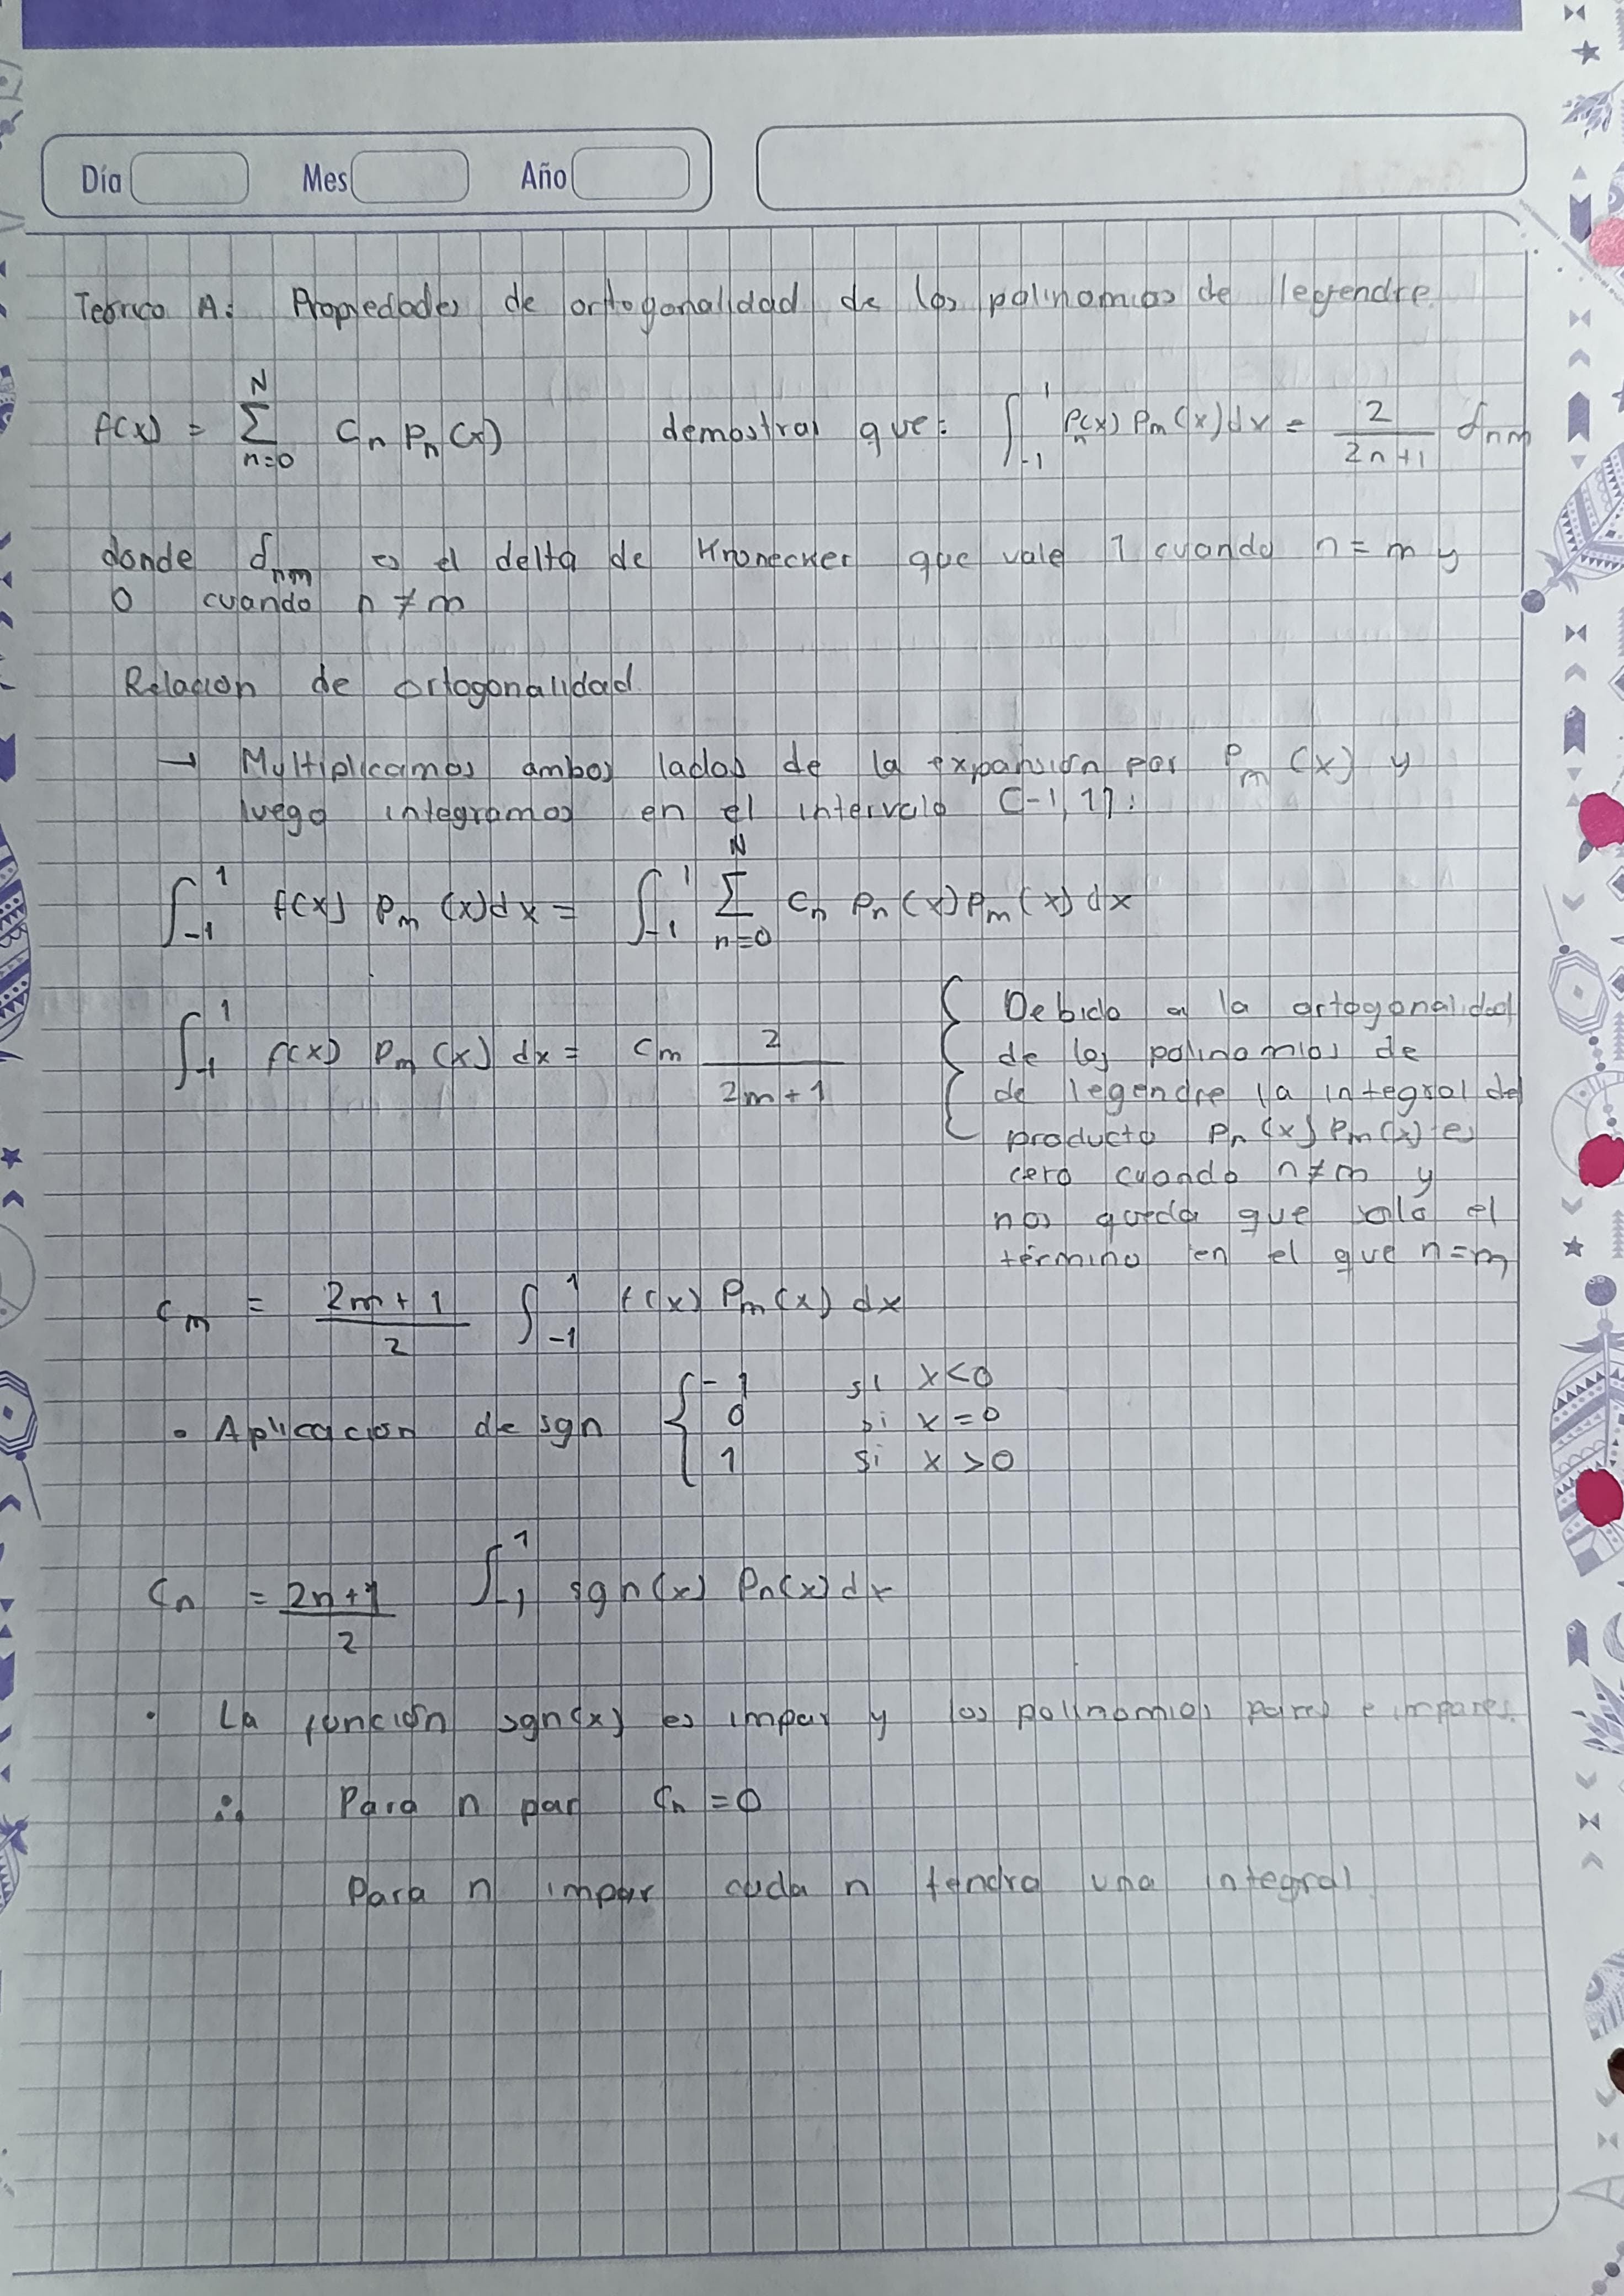 Día Mes Año
Teórico A: Propiedades de ortogonalidad de los polinomios de legendre.
f(x) = \sum_{n=0}^{N} C_n P_n(x) demostrar que: \int_{-1}^{1} P_n(x) P_m(x) dx = \frac{2}{2n+1} δ_{nm}
donde δ_{nm} es el delta de Kronecker que vale 1 cuando n = m y
0 cuando n ≠ m
Relacion de ortogonalidad
→ Multiplicamos ambos lados de la expansión por P_m(x) y
luego integramos en el intervalo [-1, 1]:
\int_{-1}^{1} f(x) P_m(x) dx = \int_{-1}^{1} \sum_{n=0}^{N} C_n P_n(x) P_m(x) dx
\int_{-1}^{1} f(x) P_m(x) dx = C_m \frac{2}{2m+1}
{ Debido a la ortogonalidad
de los polinomios de
de legendre la integral del
producto P_n(x) P_m(x) es
cero cuando n ≠ m y
nos queda que solo el
término en el que n = m
C_m = \frac{2m+1}{2} \int_{-1}^{1} f(x) P_m(x) dx
• Aplicacion de sgn { -1 si x < 0
0 si x = 0
1 si x > 0
C_n = \frac{2n+1}{2} \int_{-1}^{1} sgn(x) P_n(x) dx
• La función sgn(x) es impar y los polinomios pares e impares.
∴ Para n par C_n = 0
Para n impar cada n tendra una integral